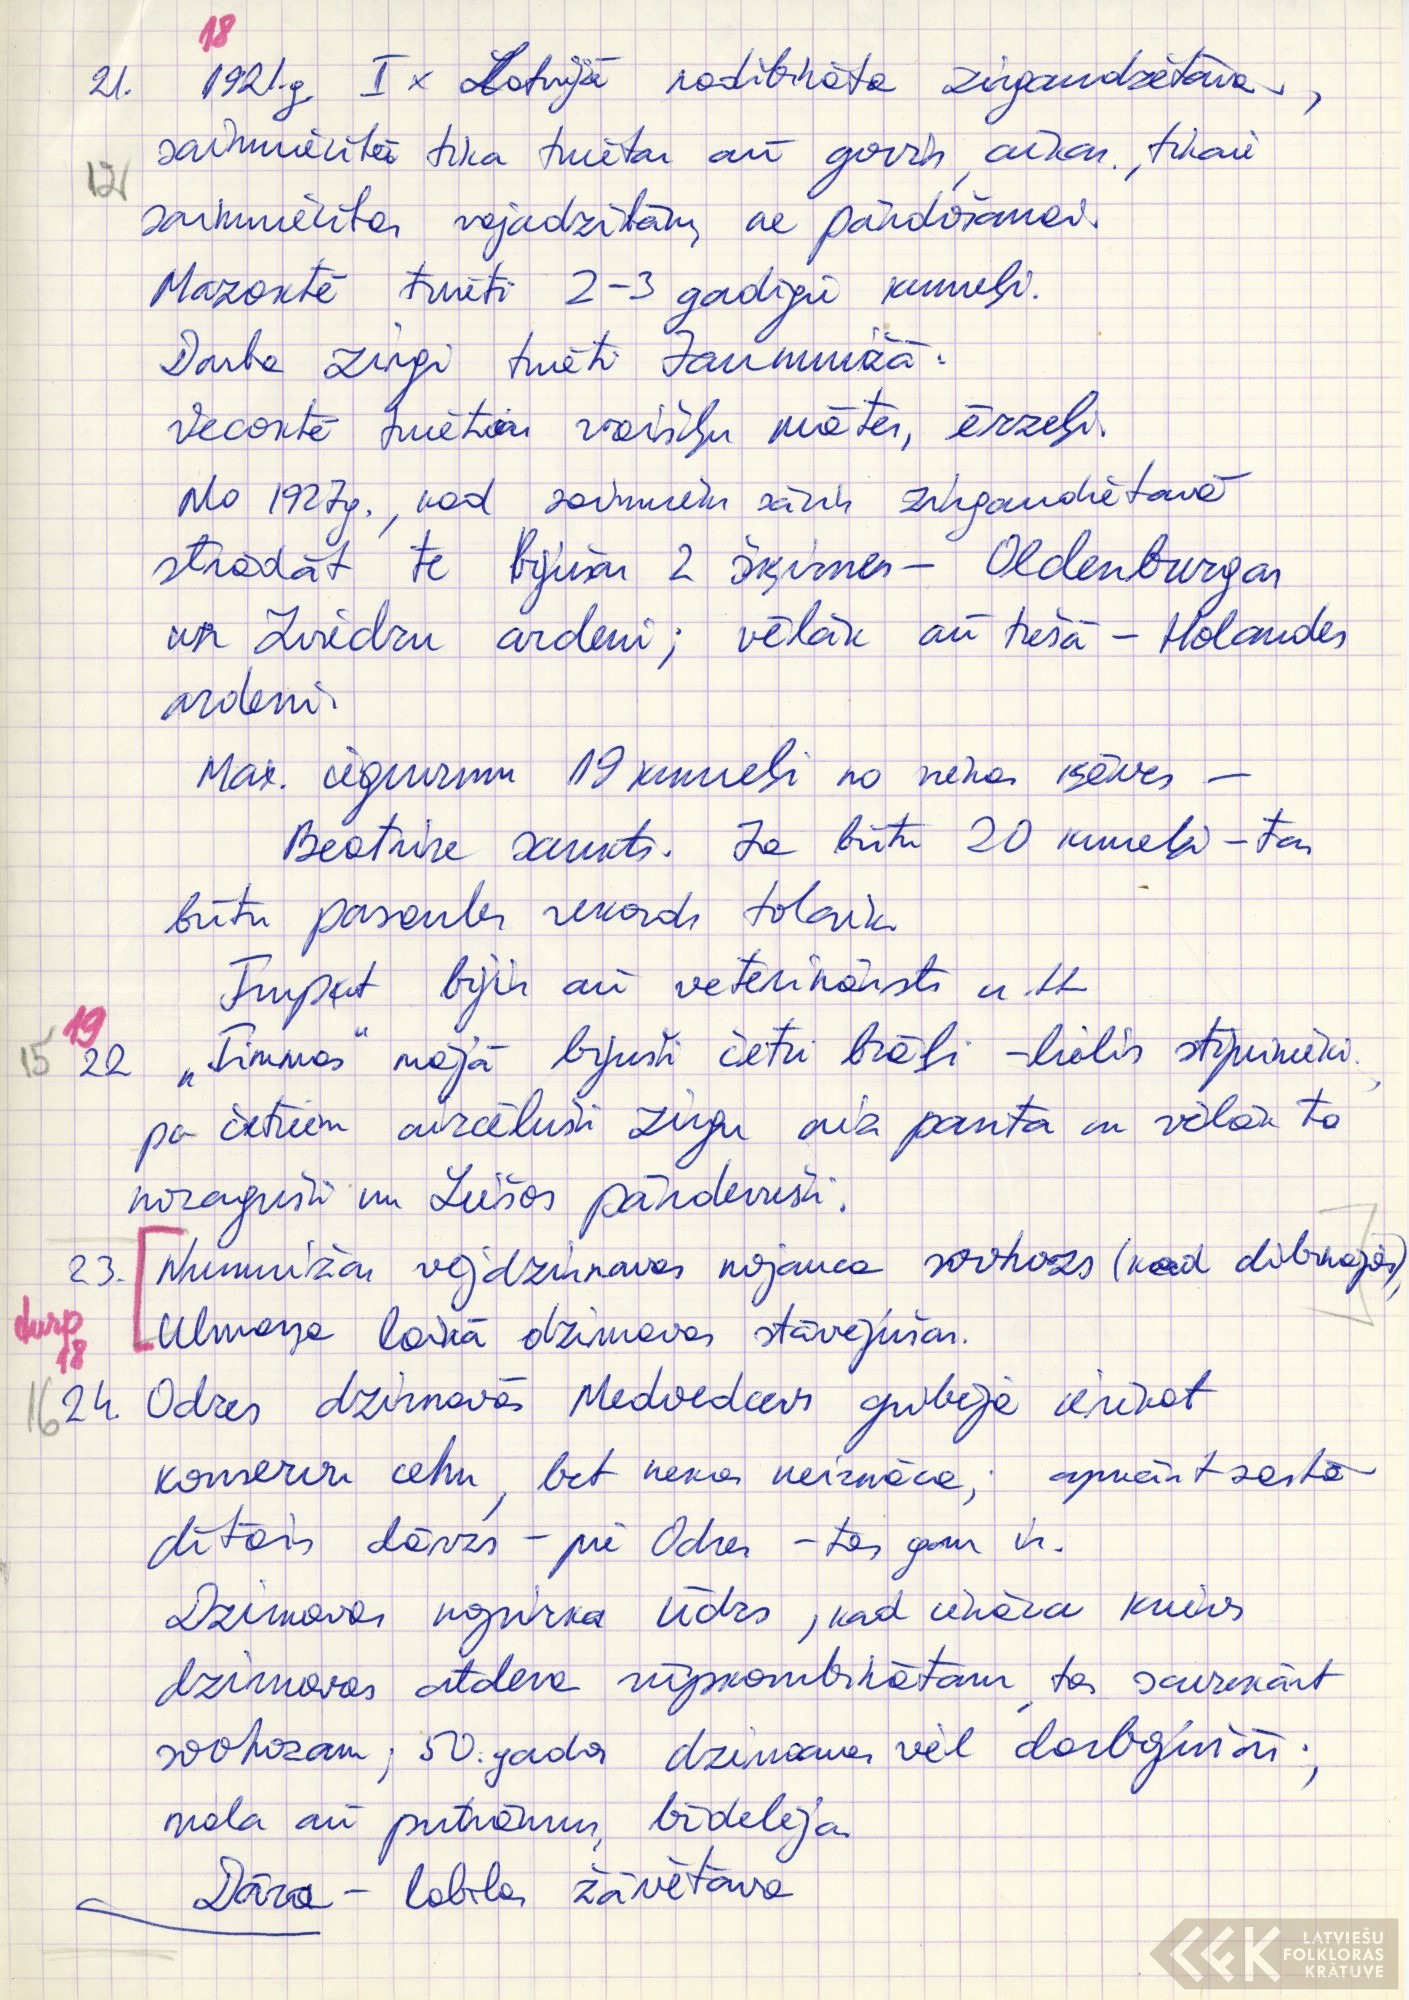 18
21. 1921.g. I x Latvijā nodibināta zirgaudzētava,
12 saimniecībā tika turētas arī govis, aitas, tikai
saimniecības vajadzībām, ne pārdošanai.
Mazoktē turēti 2-3 gadīgie kumeļi.
Darba zirgi turēti Jaunmuižā.
Vecoktē turētas vaislas mātes, ērzeļi.
No 1927g., kad saimnieks sācis zirgaudzētavā
strādāt te bijušas 2 šķirnes - Oldenburgas
un Zviedru ardeņi; vēlāk arī trešā - Holandes
ardeņi.
Max. ieguvums 19 kumeļi no vienas ķēves -
Beatrise saukts. Ja būtu 20 kumeļi - tas
būtu pasaules rekords tolaik.
Turpat bijis arī veterinārsts u
15 19 22 „Timmas" mājā bijuši četri brāļi - lielis stiprinieki.,
pa četriem aizcēluši zirgu aiz pakta un vēlāk to
nozaguši un Leišos pārdevuši.
23. vējdzirnavas nojauca sovhozs (kad dibinājās),
Ulmaņa laikā dzirnavas stāvējušas.
turp
18
16 24. Odzes dzirnavās Medvedcevs gribēja ierīkot
konservu cehu, bet nekas neiznāca; apkārt sastā-
dītais dārzs - pie Odzes - tas gan ir.
Dzirnavas nopirka Ūdrs, kad ienāca krievs
dzirnavas atdeva rūpkombinātam, tas savukārt
sovhozam; 50. gados dzirnavas vēl darbojušās;
mala arī putraimus, bīdelēja.
Dārza - labības žāvētava
LATVIEŠU
FOLKLORAS
KRĀTUVE